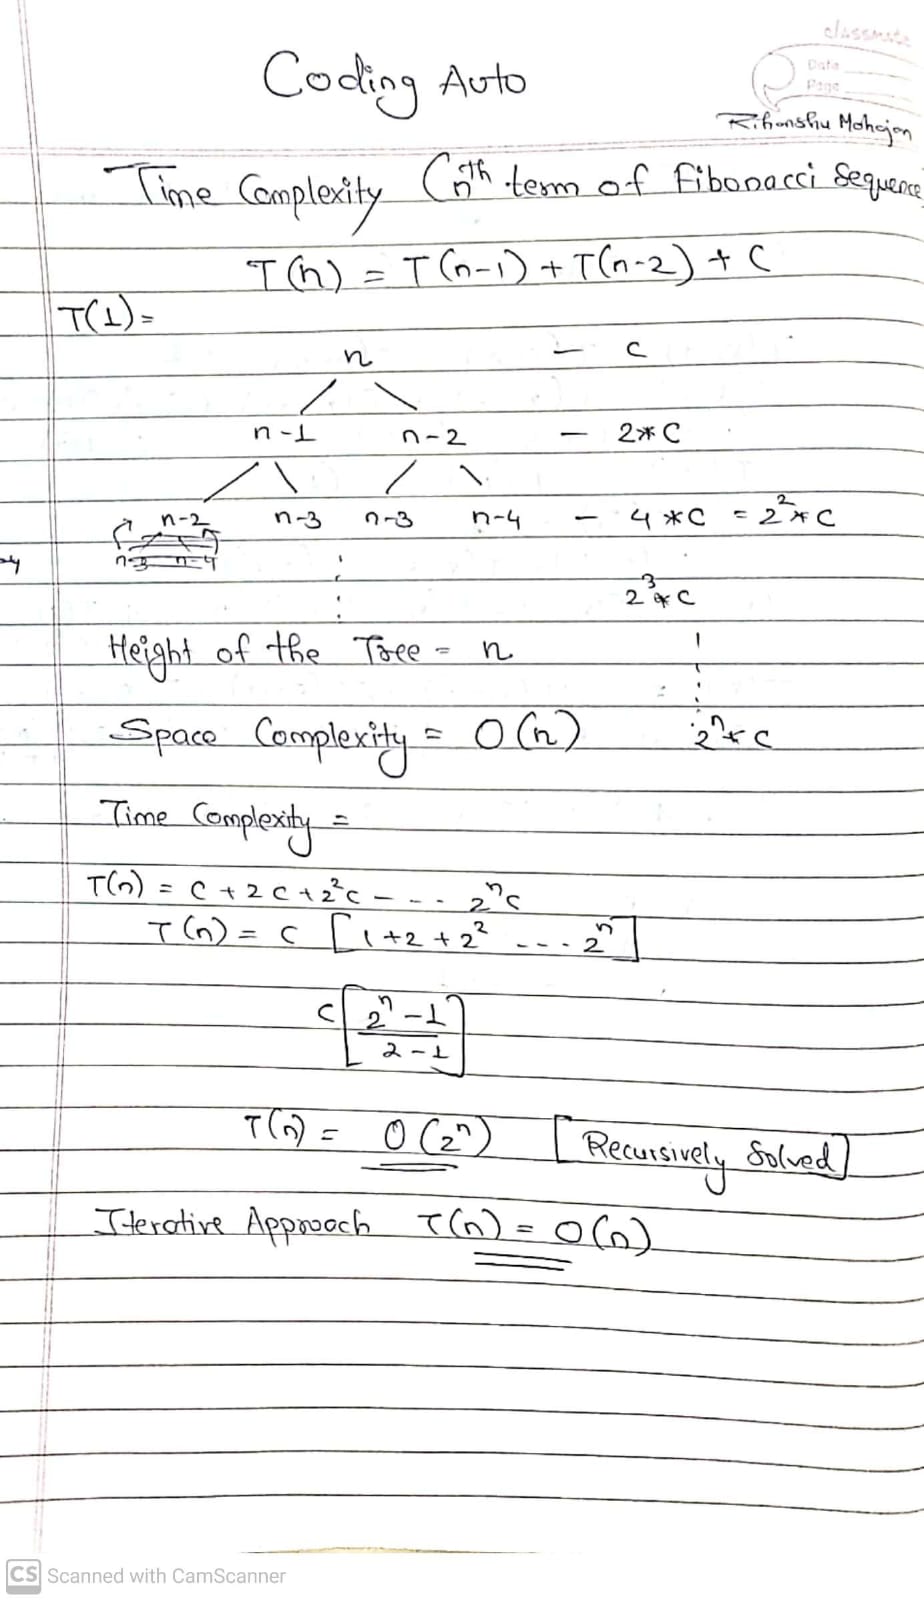 classmate
Date
Page
Coding Auto
Rihanshu Mahajan
Time Complexity (nth term of Fibonacci Sequence
T(n) = T(n-1) + T(n-2) + C
T(1) =
n - C
n-1 n-2 - 2*C
n-2 n-3 n-3 n-4 - 4*C = 2²*C
n-3 n-4
2³*C
Height of the Tree = n
Space Complexity = O(n) 2ⁿ*C
Time Complexity =
T(n) = C + 2C + 2²C - - - 2ⁿC
T(n) = C [1 + 2 + 2² - - - 2ⁿ]
C[2ⁿ-1
2-1]
T(n) = O(2ⁿ) [Recursively Solved]
Iterative Approach T(n) = O(n)
CS Scanned with CamScanner